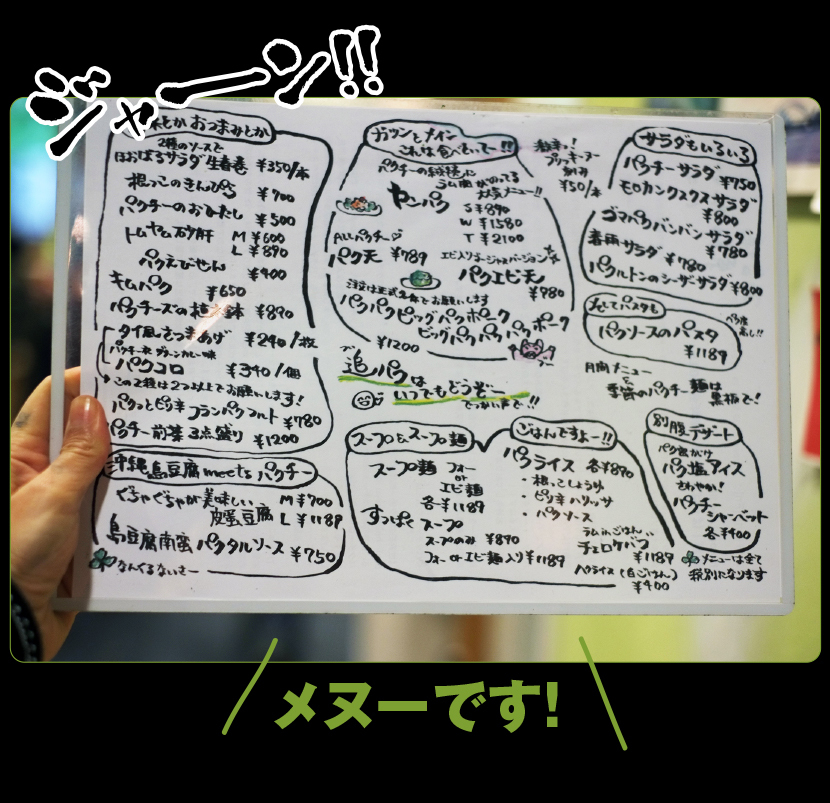 ジャーン!!
おつまみとか
2種のソースで
ほおばるサラダ生春巻 ¥350/本
根っこのきんぴら ¥700
パクチーのおひたし ¥500
トムヤム砂肝 M ¥600
L ¥890
パクえびせん ¥400
キムパク ¥650
パクチーズの ¥890
タイ風さつまあげ ¥240/枚
パクチー衣 グリーンカレー味
パクコロ ¥340/個
この2種は2つ以上でお願いします!
パクっとピリ辛フランパクフルト ¥780
パクチー前菜3点盛り ¥1200
沖縄島豆腐meetsパクチー
ぐちゃぐちゃが美味しい M ¥700
皮蛋豆腐 L ¥1189
島豆腐南蛮パクタルソース ¥750
なんくるないさー
ガツンとメイン
これは食べもいてー!!
パクチーの
ラム肉がのってる
大人気メニュー!!
ヤンパク
S ¥890
W ¥1580
T ¥2100
ALLパクチー
パク天 ¥789
エビ入りゴージャスバージョン
パクエビ天 ¥980
注文は正式名称でお願いします
パクパクピッグパクポーク
ビッグパクパクパクポーク
¥1200
ブー
追パクは
いつでもどうぞー
でっかい声で!!
プッキーヌー
刻み
¥50/本
サラダもいろいろ
パクチーサラダ ¥750
モロカンクスクスサラダ
¥800
ゴマパクバンバンサラダ
¥780
春雨サラダ ¥780
パクルトンのシーザーサラダ ¥800
そしてパスタも
パクソースのパスタ
¥1189
月間メニュー
&
季節のパクチー麺は
黒板で!
スープ&スープ麺
スープ麺 フォー
or
エビ麺
各 ¥1189
すっぱくスープ
スープのみ ¥890
フォー or エビ麺入り ¥1189
ごはんですよー!!
パクライス 各¥890
・根っこしょうゆ
・ピリ辛ハリッサ
・パクソース
ラム in ごはん
チェロケバブ
¥1189
パクライス(白ごはん)
¥400
別腹デザート
パク塩アイス
さわやか!
パクチー
シャーベット
各¥400
メニューは全て
税別になります
メニューです!